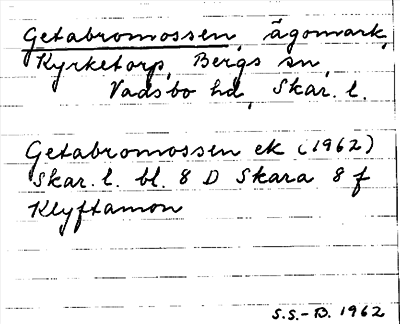 Getabromossen, ägomark,
Kyrketorp, Bergs sn,
Vadsbo hd, Skar. l.
Getabromossen ek (1962)
Skar. l. bl. 8 D Skara 8 f
Klyftamon
S.S.-B. 1962